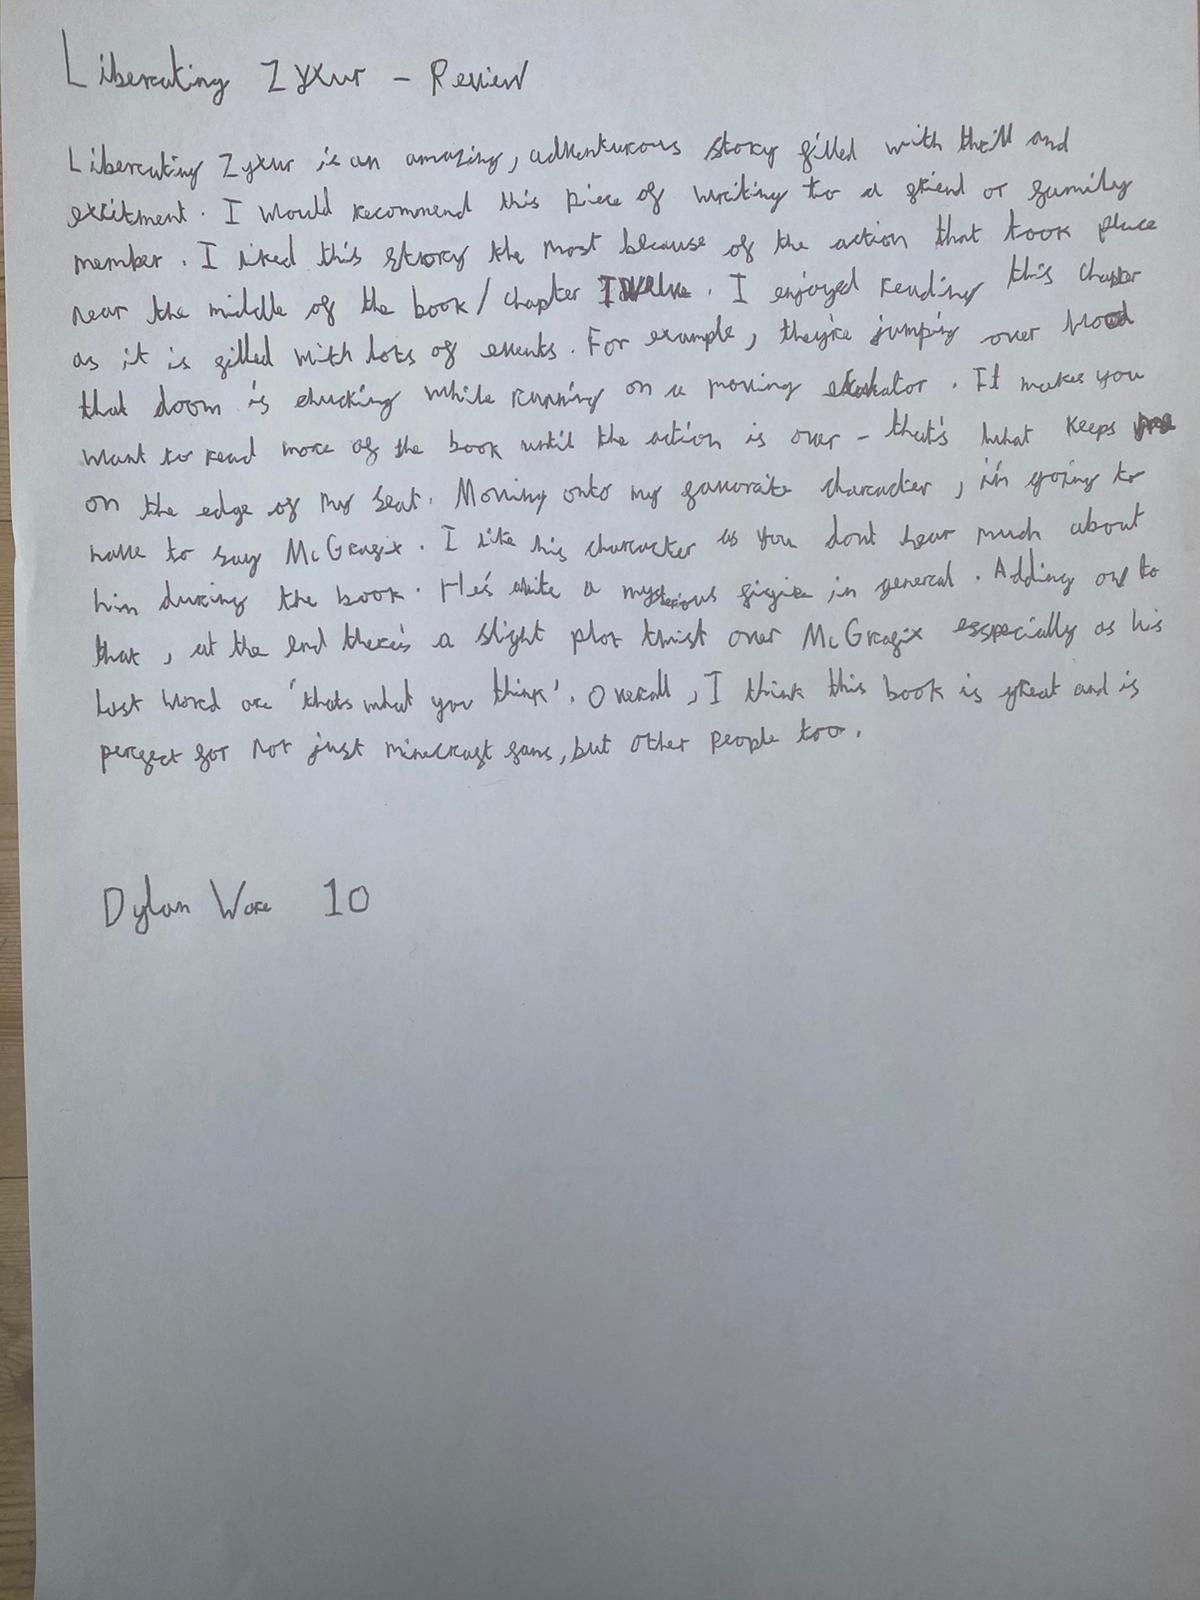 Liberating Zyxur - Review
Liberating Zyxur is an amazing, adventurous story filled with thrill and
excitment. I would recommend this piece of writing to a friend or family
member. I liked this story the most because of the action that took place
near the middle of the book / chapter Twelve. I enjoyed reading this chapter
as it is filled with lots of events. For example, they're jumping over wood
that doom is chucking while running on a moving . It makes you
want to read more of the book until the action is over - that's what keeps me
on the edge of my seat. Moving onto my favorite charcacter, i'm going to
have to say McGragix. I like his character as you dont hear much about
him during the book. He's quite a mysterious in general. Adding on to
that, at the end there's a slight plot twist over McGragix esspecially as his
last word are 'thats what you think'. Overall, I think this book is great and is
perfect for not just minecraft fans, but other people too.
Dylan 10